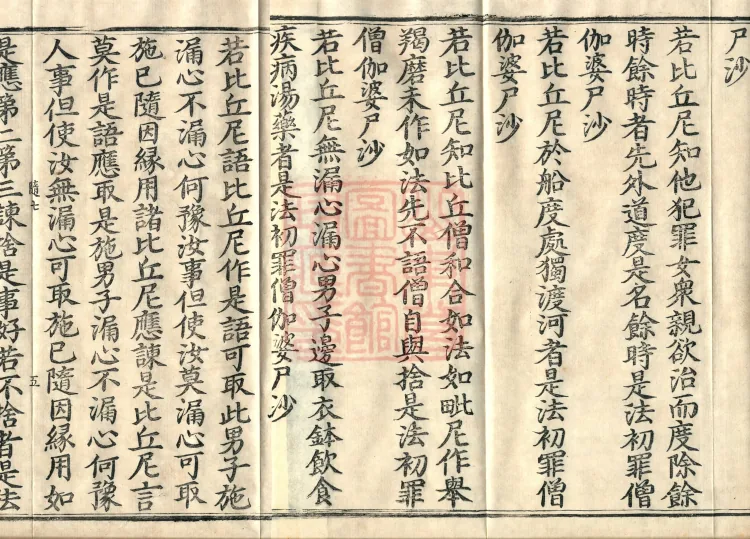 尸沙
若比丘尼知他犯罪女衆親欲治而度除餘
時餘時者先外道度是名餘時是法初罪僧
伽婆尸沙
若比丘尼於船度處獨渡河者是法初罪僧
伽婆尸沙
若比丘尼知比丘僧和合如法如毗尼作舉
羯磨未作如法先不語僧自與捨是法初罪
僧伽婆尸沙
若比丘尼無漏心漏心男子邊取衣鉢飲食
疾病湯藥者是法初罪僧伽婆尸沙
若比丘尼語比丘尼作是語可取此男子施
漏心不漏心何豫汝事但使汝莫漏心可取
施已隨因緣用諸比丘尼應諫是比丘尼言
莫作是語應取是施男子漏心不漏心何豫
人事但使汝無漏心可取施已隨因緣用如
隨七
五
是應第二第三諫捨是事好若不捨者是法